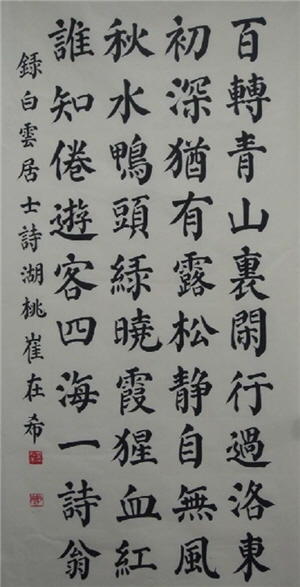 百轉青山裏閑行過洛東
初深猶有露松静自無風
秋水鴨頭綠曉霞猩血紅
誰知倦遊客四海一詩翁
錄白雲居士詩湖桃崔在希